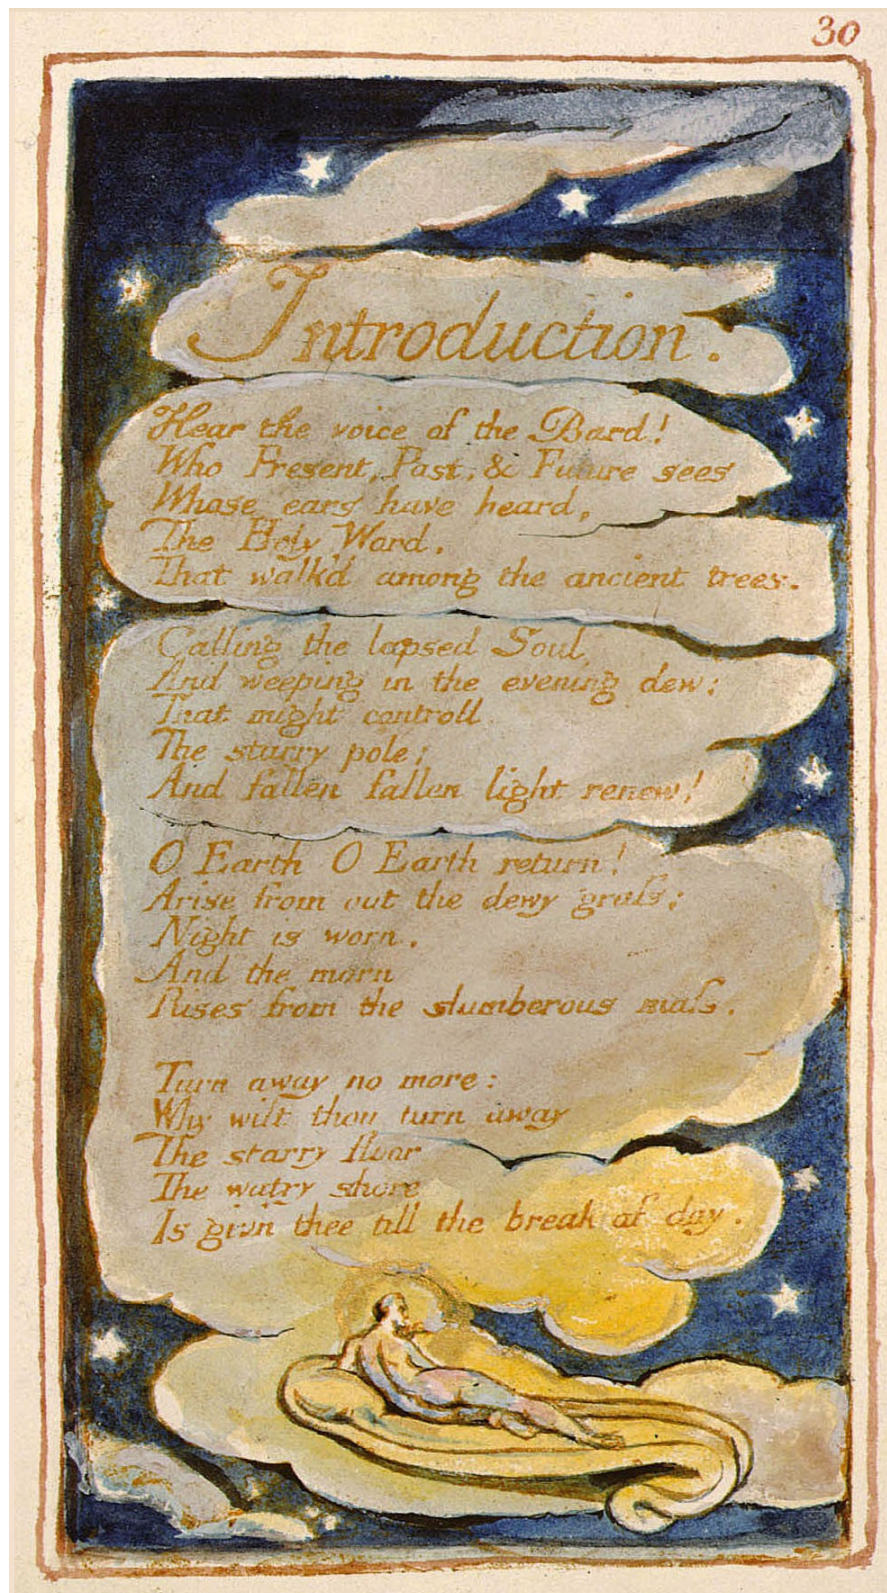 30
Introduction.
Hear the voice of the Bard!
Who Present, Past, & Future sees
Whose ears have heard,
The Holy Word,
That walk'd among the ancient trees.
Calling the lapsed Soul
And weeping in the evening dew:
That might controll
The starry pole;
And fallen fallen light renew!
O Earth O Earth return!
Arise from out the dewy grass;
Night is worn,
And the morn
Rises from the slumberous mass.
Turn away no more:
Why wilt thou turn away
The starry floor
The watry shore
Is giv'n thee till the break of day.